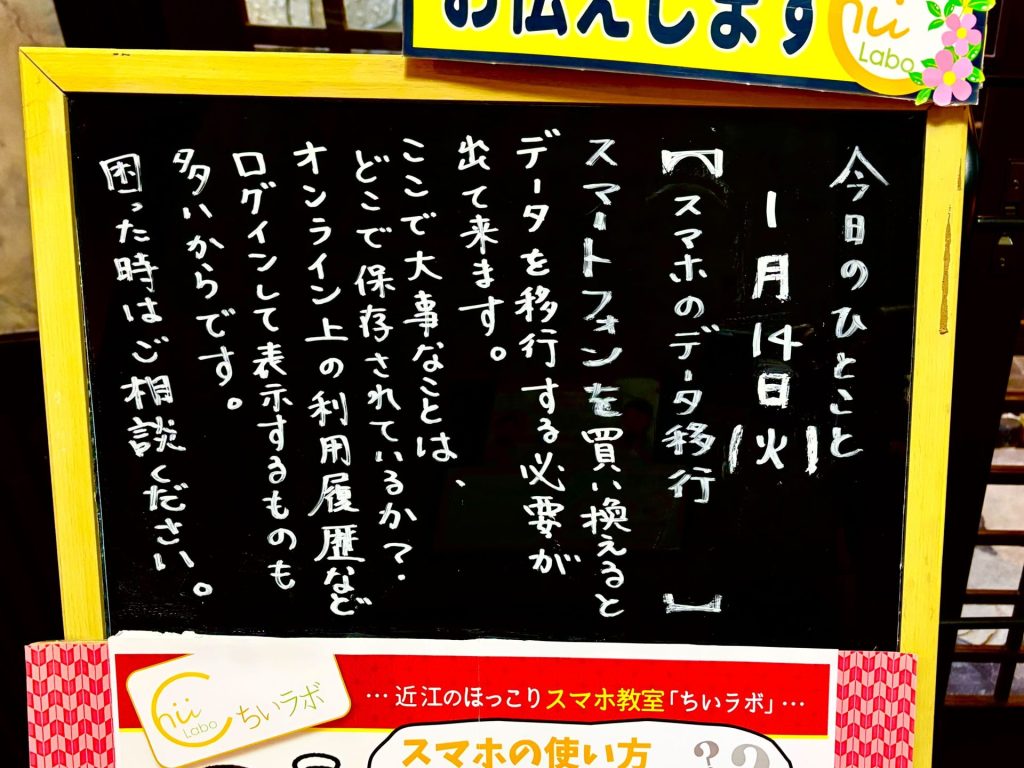 お伝えします
Chii
Labo
今日のひとこと
1月14日(火)
【スマホのデータ移行】
スマートフォンを買い換えると
データを移行する必要が
出て来ます。
ここで大事なことは、
どこで保存されているか?
オンライン上の利用履歴など
ログインして表示するものも
多いからです。
困った時はご相談ください。
Chii
Labo
ちいラボ
…近江のほっこりスマホ教室「ちいラボ」…
スマホの使い方
??